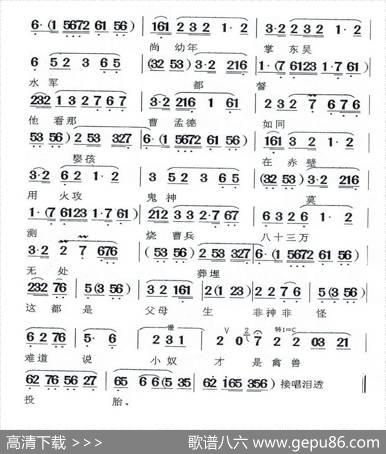 6·(1 5672 61 56) 161 2 3 2 1·2 3·2 2 3 2 1·2
尚 幼 年 掌 东 吴
6 5 2 3 6 5 (32 53) 3·2 216 1·(7 6123 1·7 61)
水 军 都 督
232 1 3 2 7 6 7 3·2 216 1 61 2 3 2 7 6 7 6
他 看 那 曹 孟 德 如 同
53 56) 2 53 327 6·(1 5672 61 56) 161 3 2 1·2
婴 孩 在 赤 壁
3·2 6 2 1·2 3 5 2 3 6 5 (32 53) 3·2 216
用 火 攻 鬼 神 莫
1·(7 6123 1·7 61) 212 3 3 2·7 67 6 3 2 6 1·2
测 烧 曹 兵 八 十 三 万
3·2 2 7 676 (53 56) 2 53 327 6·(1 5672 61 56)
无 处 葬 埋
232 76 5(3 56) 1 6 1 2(1 23) 2 2 7 6 5(3 56)
这 都 是 父 母 生 非 神 非 怪
6 2 76 5·6 慢 2 3 1 V 2 0 7 2 转1=C 2 03 21
难 道 说 小 奴 才 是 禽 兽
62 76 56 27 65 6 6(5 35 62 165 356) 接唱泪透
投 胎。
高清下载 >>> 歌谱八六 www.gepu86.com